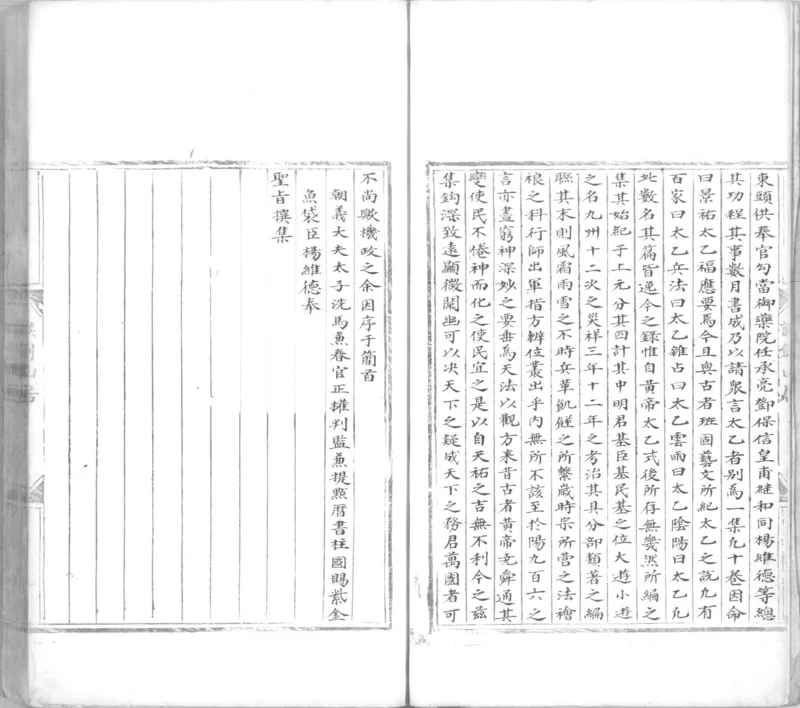 東頭供奉官勾當御藥院任承亮鄧保信皇甫繼和同楊維德等總
其功程其事數月書成乃以請衆言太乙者别為一集凢十卷因命
曰景祐太乙福應要焉今且與古者班固藝文所紀太乙之說凢有
百家曰太乙兵法曰太乙雜占曰太乙雲雨曰太乙陰陽曰太乙凢
此數名其篇皆逸今之錄惟自黄帝太乙式後所存無幾然所編之
集其始紀于上元分其四計其中明君基臣基民基之位大遊小遊
之名九州十二次之災祥三年十二年之考治其具分部類著之編
聮其本則風霜雨雪之不時兵革飢饉之所繫歲時宗所营之法禬
禳之科行師出軍指方辨位叢出乎内無所不該至於陽九百六之
言亦盡窮神深妙之要垂為天法以觀方来昔古者黄帝尭舜通其
變使民不倦神而化之使民宜之是以自天祐之吉無不利今之兹
集鈎深致遠顯微闡幽可以决天下之疑成天下之務君萬國者可
不尚歟機政之余因序于簡首
朝義大夫太子洗馬兼春官正權判監兼提㸃曆書柱國賜紫金
魚袋臣楊維德奉
聖旨撰集